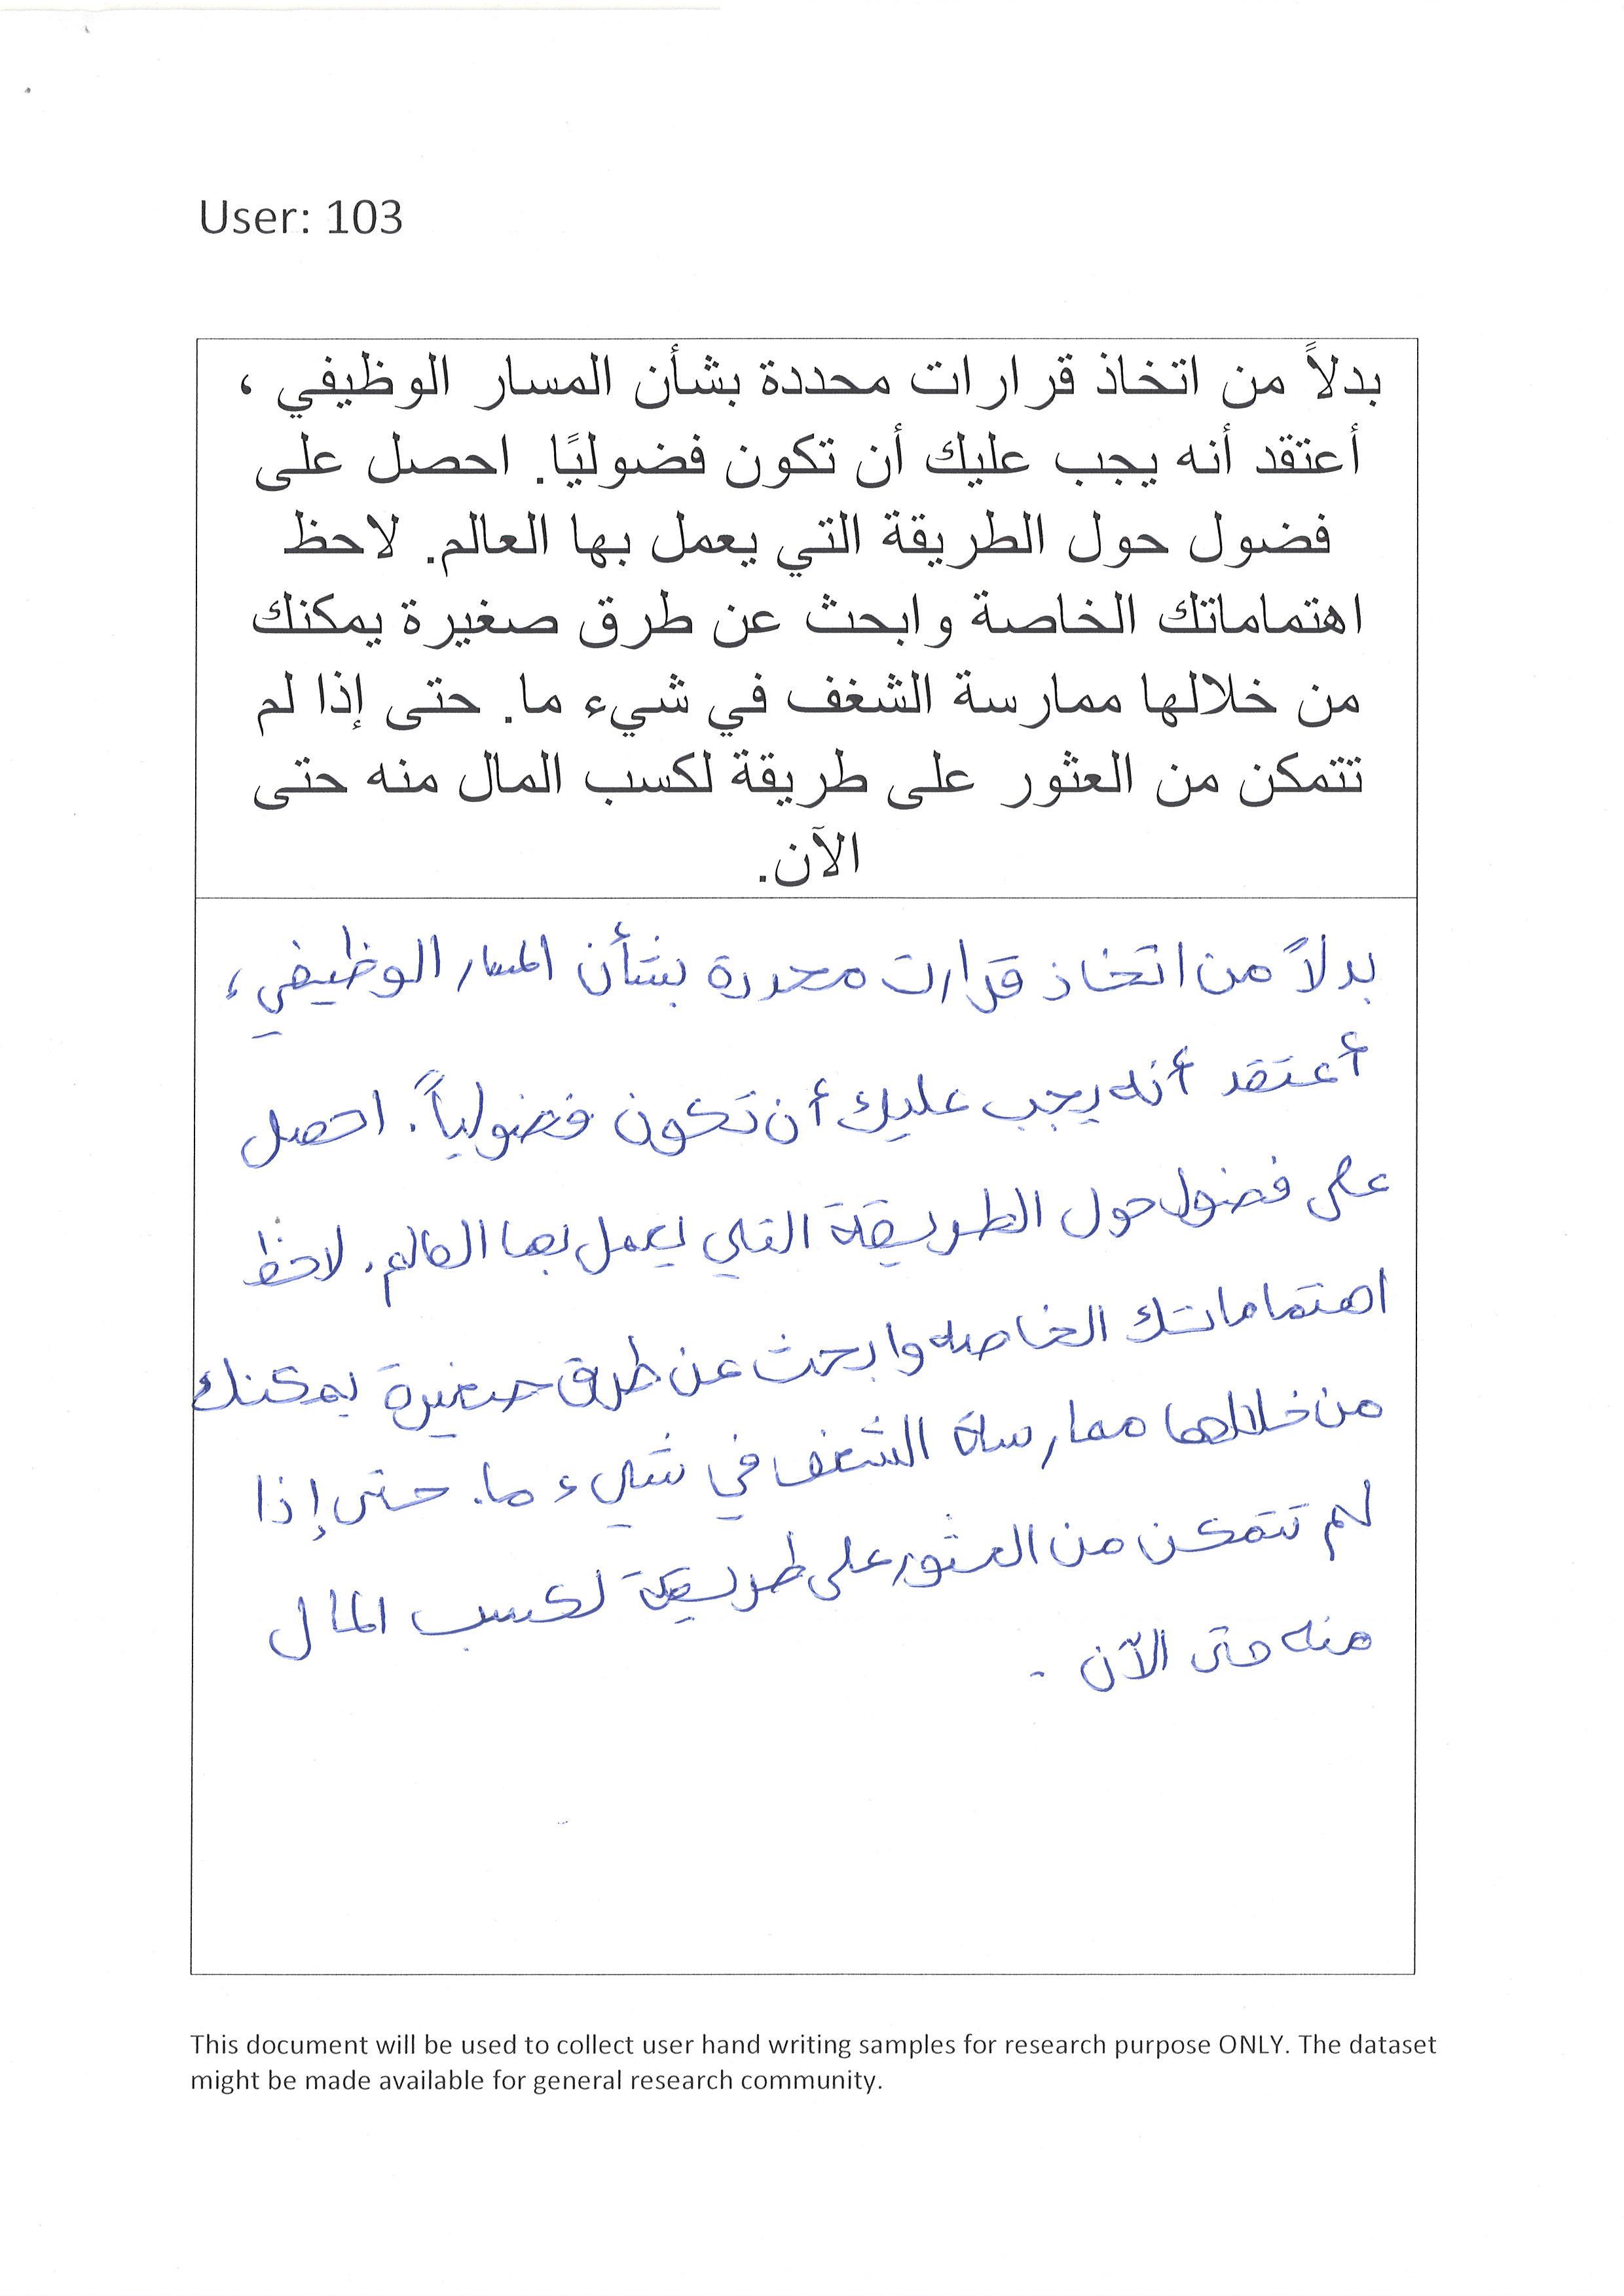 User: 103
بدلاً من اتخاذ قرارات محددة بشأن المسار الوظيفي ،
أعتقد أنه يجب عليك أن تكون فضوليًا. احصل على
فضول حول الطريقة التي يعمل بها العالم. لاحظ
اهتماماتك الخاصة وابحث عن طرق صغيرة يمكنك
من خلالها ممارسة الشغف في شيء ما. حتى إذا لم
تتمكن من العثور على طريقة لكسب المال منه حتى
الآن.
بدلاً من اتخاذ قرارت محددة بشأن المسار الوظيفي ،
أعتقد أنه يجب عليك أن تكون فضولياً. احصل
على فضول حول الطريقة التي يعمل بها العالم. لاحظ
اهتماماتك الخاصه وابحث عن طرق صغيرة يمكنك
من خلالها ممارسة الشغف في شيء ما. حتى إذا
لم تتمكن من العثور على طريقة لكسب المال
منه حتى الآن .
This document will be used to collect user hand writing samples for research purpose ONLY. The dataset
might be made available for general research community.